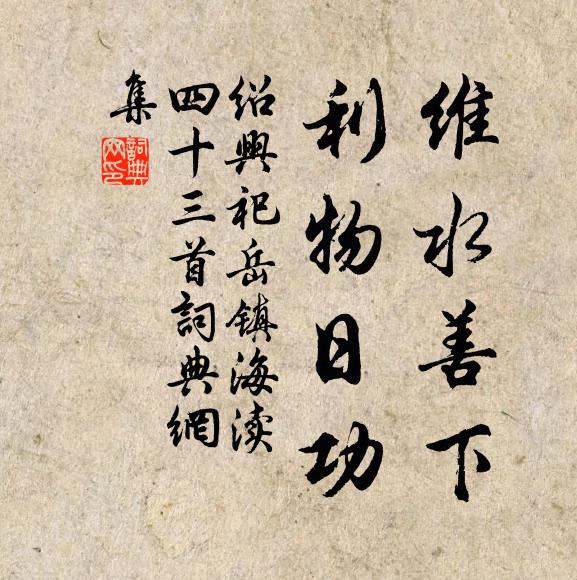 維水善下
利物日功
绍興祀岳镇海渎
四十三首詞典網
集
詞典
网印